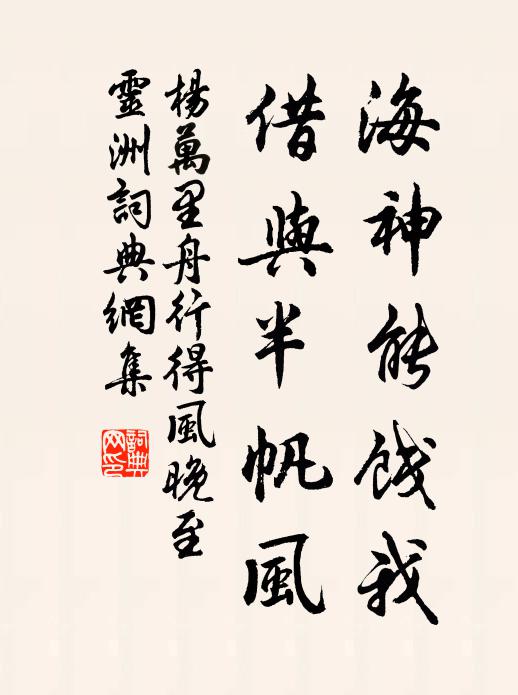 海神能餞我
借與半帆風
楊萬里舟行得風晚至
靈洲詞典網集
詞典
网印